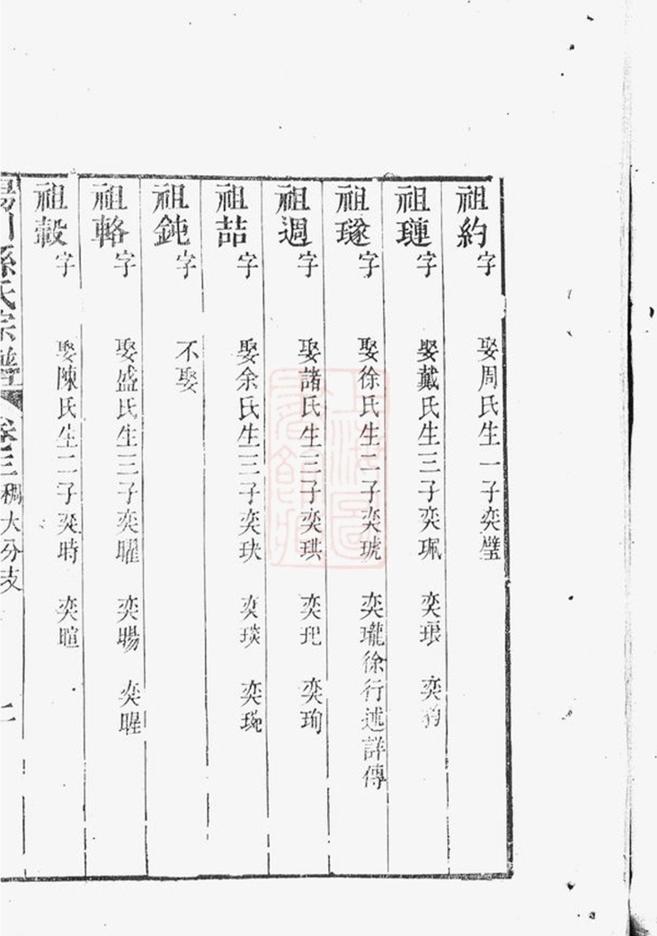 祖約字 娶周氏生一子奕璧
祖璉字 娶戴氏生三子奕珮 奕琅 奕
祖璲字 娶徐氏生二子奕琥 奕瓏徐行述詳傳
祖週字 娶諸氏生三子奕珙 奕玘 奕珣
祖喆字 娶余氏生三子奕玦 奕琰 奕琬
祖鈍字 不娶
祖輅字 娶盛氏生三子奕曜 奕暘 奕暒
祖轂字 娶陳氏生二子奕時 奕暄
川孫氏宗譜 卷三 稠大分支 二